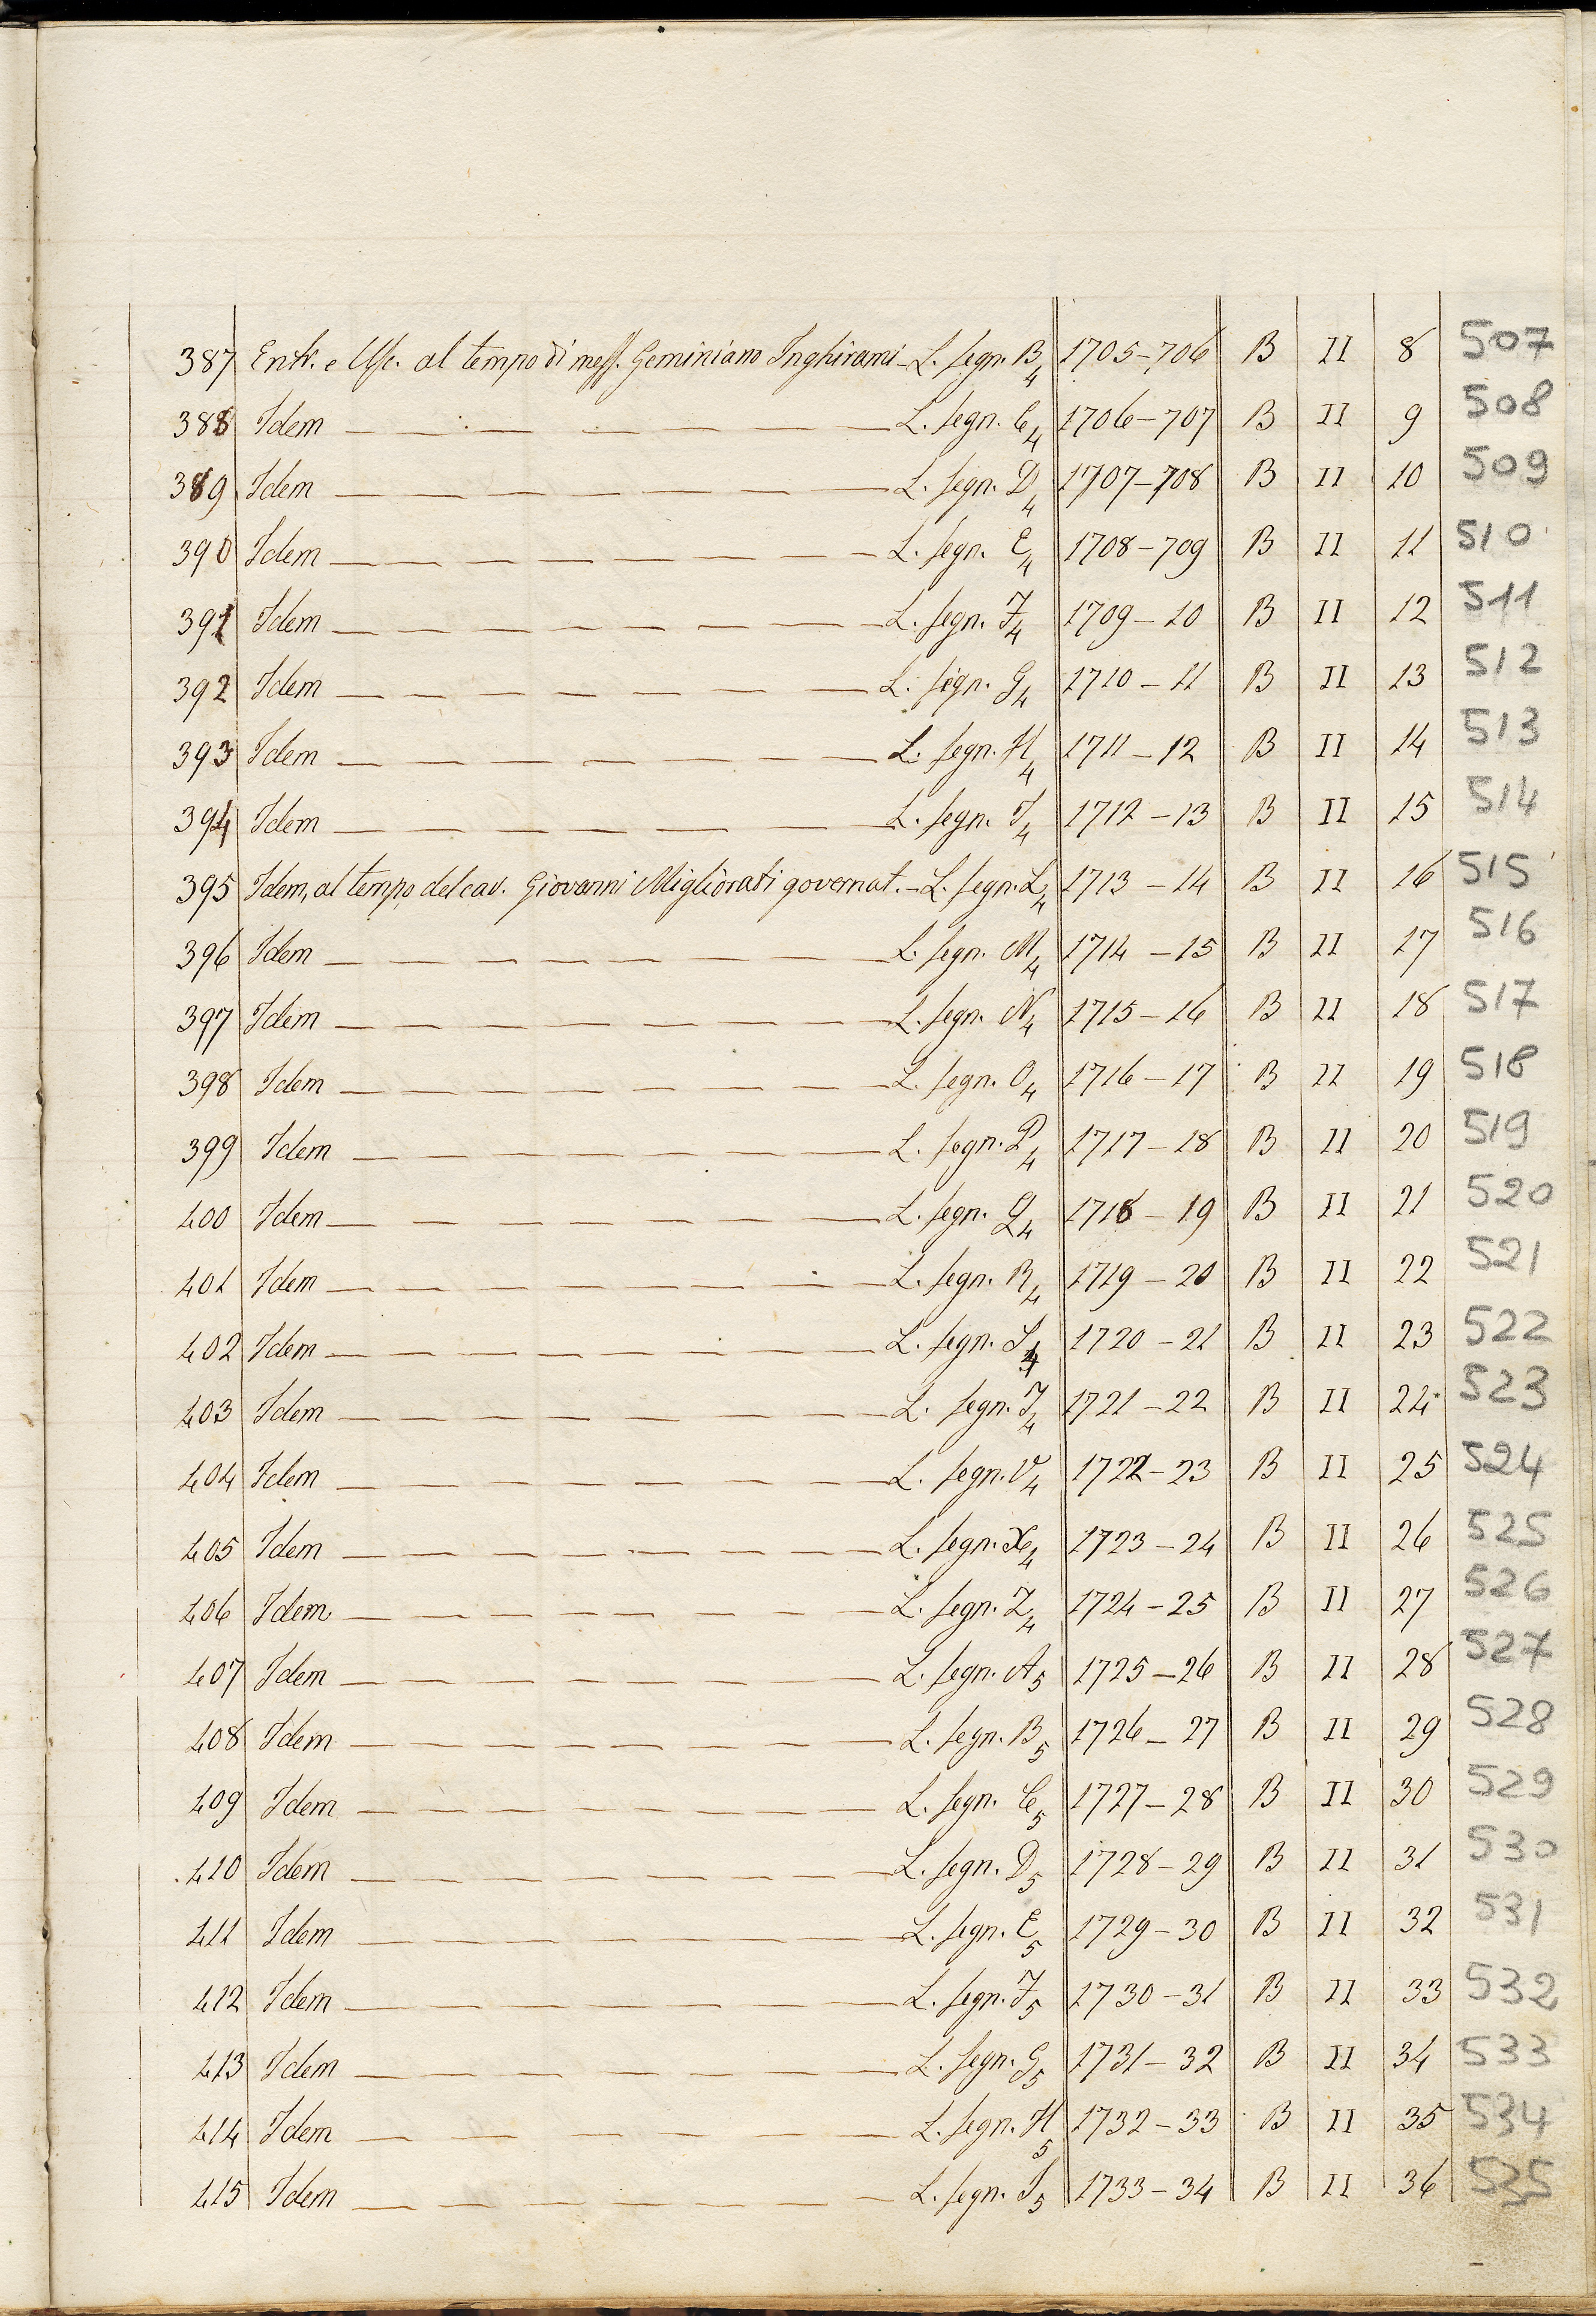 387 Entr. e Usc. al tempo di mess. Geminiano Inghirami - L. segn. B4 1705-706 B II 8 507
388 Idem — L. segn. C4 1706-707 B II 9 508
389 Idem — L. segn. D4 1707-708 B II 10 509
390 Idem — L. segn. E4 1708-709 B II 11 510
391 Idem — L. segn. F4 1709-10 B II 12 511
392 Idem — L. segn. G4 1710-11 B II 13 512
393 Idem — L. segn. H4 1711-12 B II 14 513
394 Idem — L. segn. I4 1712-13 B II 15 514
395 Idem, al tempo del cav. Giovanni Migliorati governat. - L. segn. L4 1713-14 B II 16 515
396 Idem — L. segn. M4 1714-15 B II 17 516
397 Idem — L. segn. N4 1715-16 B II 18 517
398 Idem — L. segn. O4 1716-17 B II 19 518
399 Idem — L. segn. P4 1717-18 B II 20 519
400 Idem — L. segn. Q4 1718-19 B II 21 520
401 Idem — L. segn. R4 1719-20 B II 22 521
402 Idem — L. segn. S4 1720-21 B II 23 522
403 Idem — L. segn. T4 1721-22 B II 24 523
404 Idem — L. segn. V4 1722-23 B II 25 524
405 Idem — L. segn. X4 1723-24 B II 26 525
406 Idem — L. segn. Z4 1724-25 B II 27 526
407 Idem — L. segn. A5 1725-26 B II 28 527
408 Idem — L. segn. B5 1726-27 B II 29 528
409 Idem — L. segn. C5 1727-28 B II 30 529
410 Idem — L. segn. D5 1728-29 B II 31 530
411 Idem — L. segn. E5 1729-30 B II 32 531
412 Idem — L. segn. F5 1730-31 B II 33 532
413 Idem — L. segn. G5 1731-32 B II 34 533
414 Idem — L. segn. H5 1732-33 B II 35 534
415 Idem — L. segn. I5 1733-34 B II 36 535